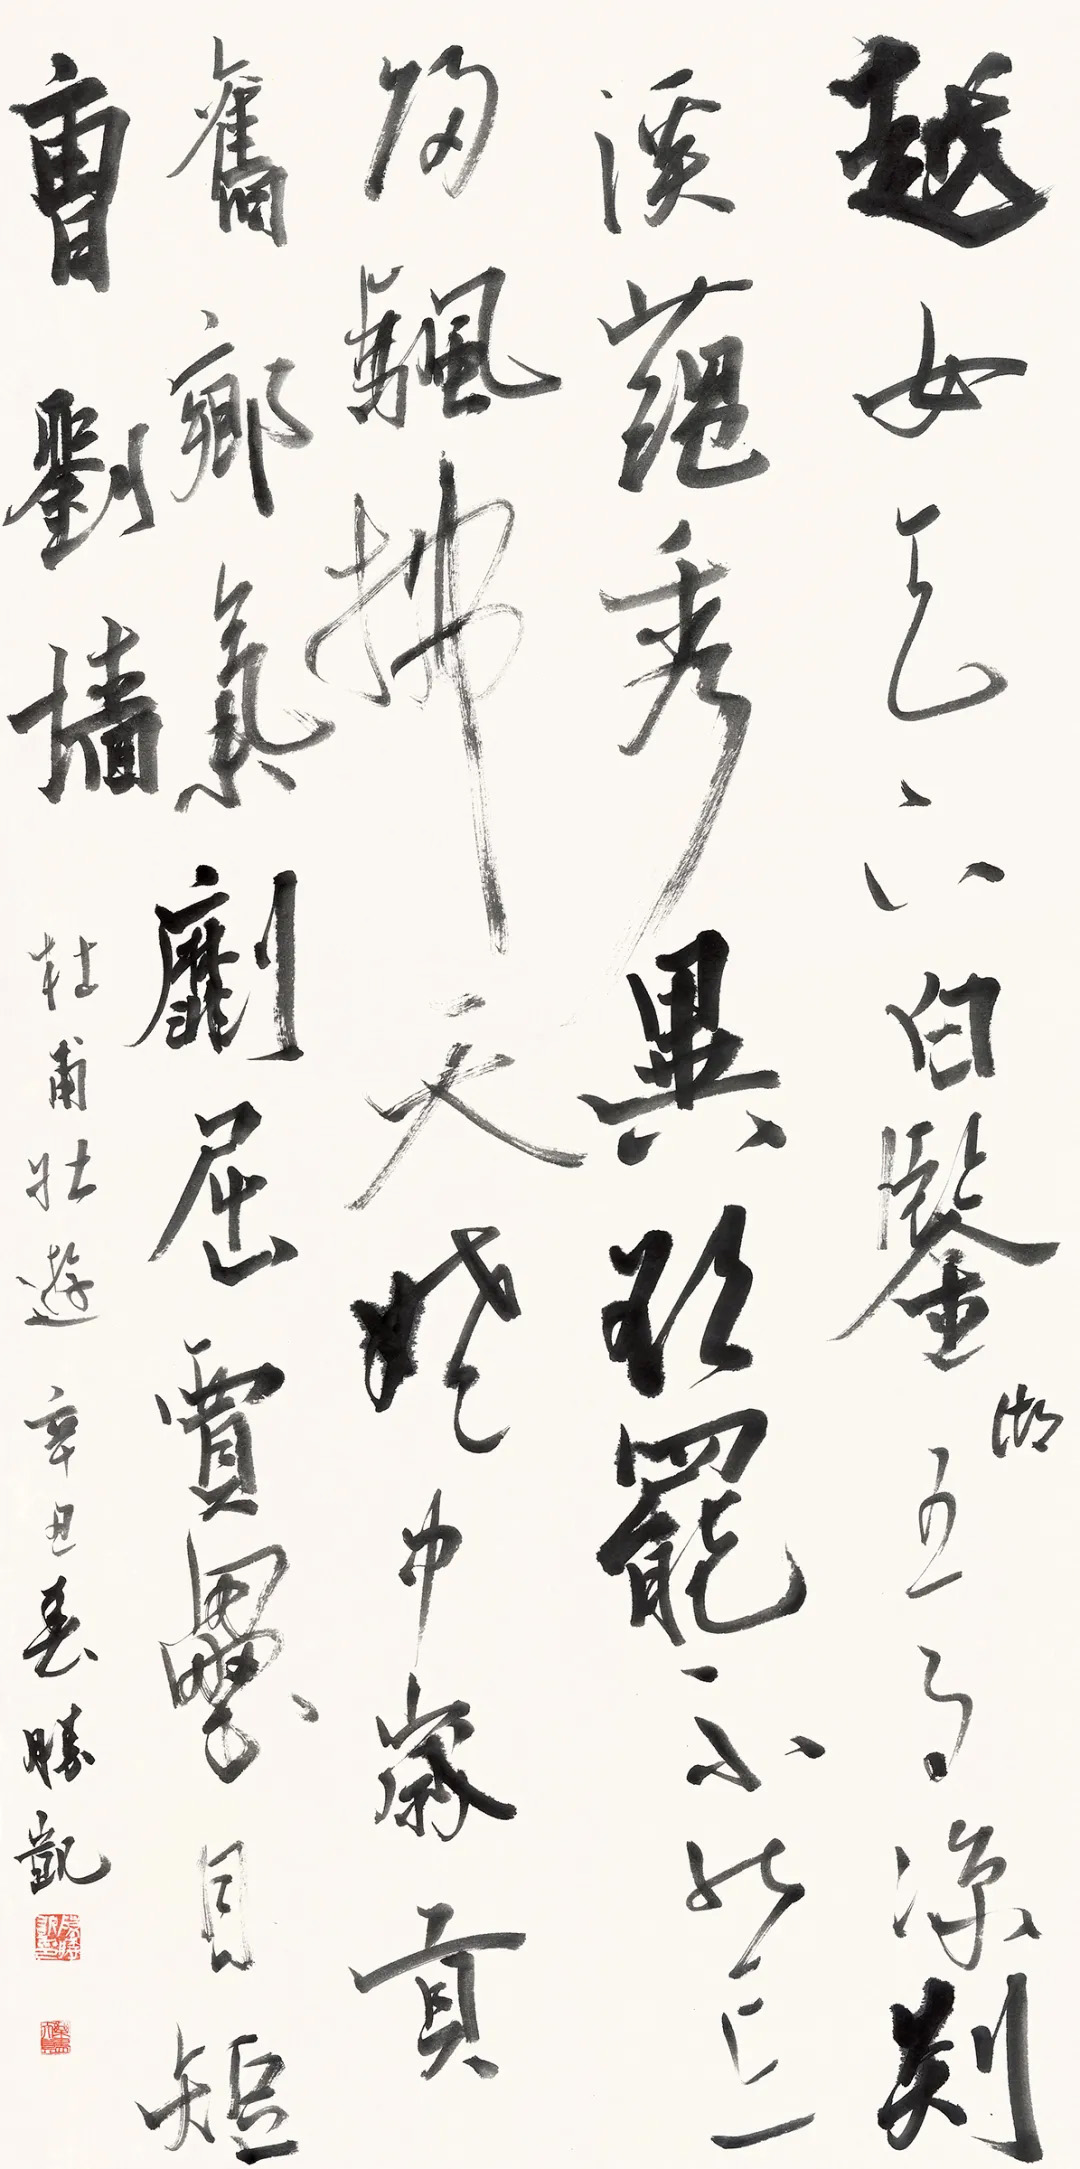 越女天下白鑒湖五月凉剡
溪蘊秀異欲罷不能忘
歸颿拂天姥中歲貢
舊鄉氣劘屈賈壘目短
曹劉墻 杜甫壯遊 辛丑春勝凱